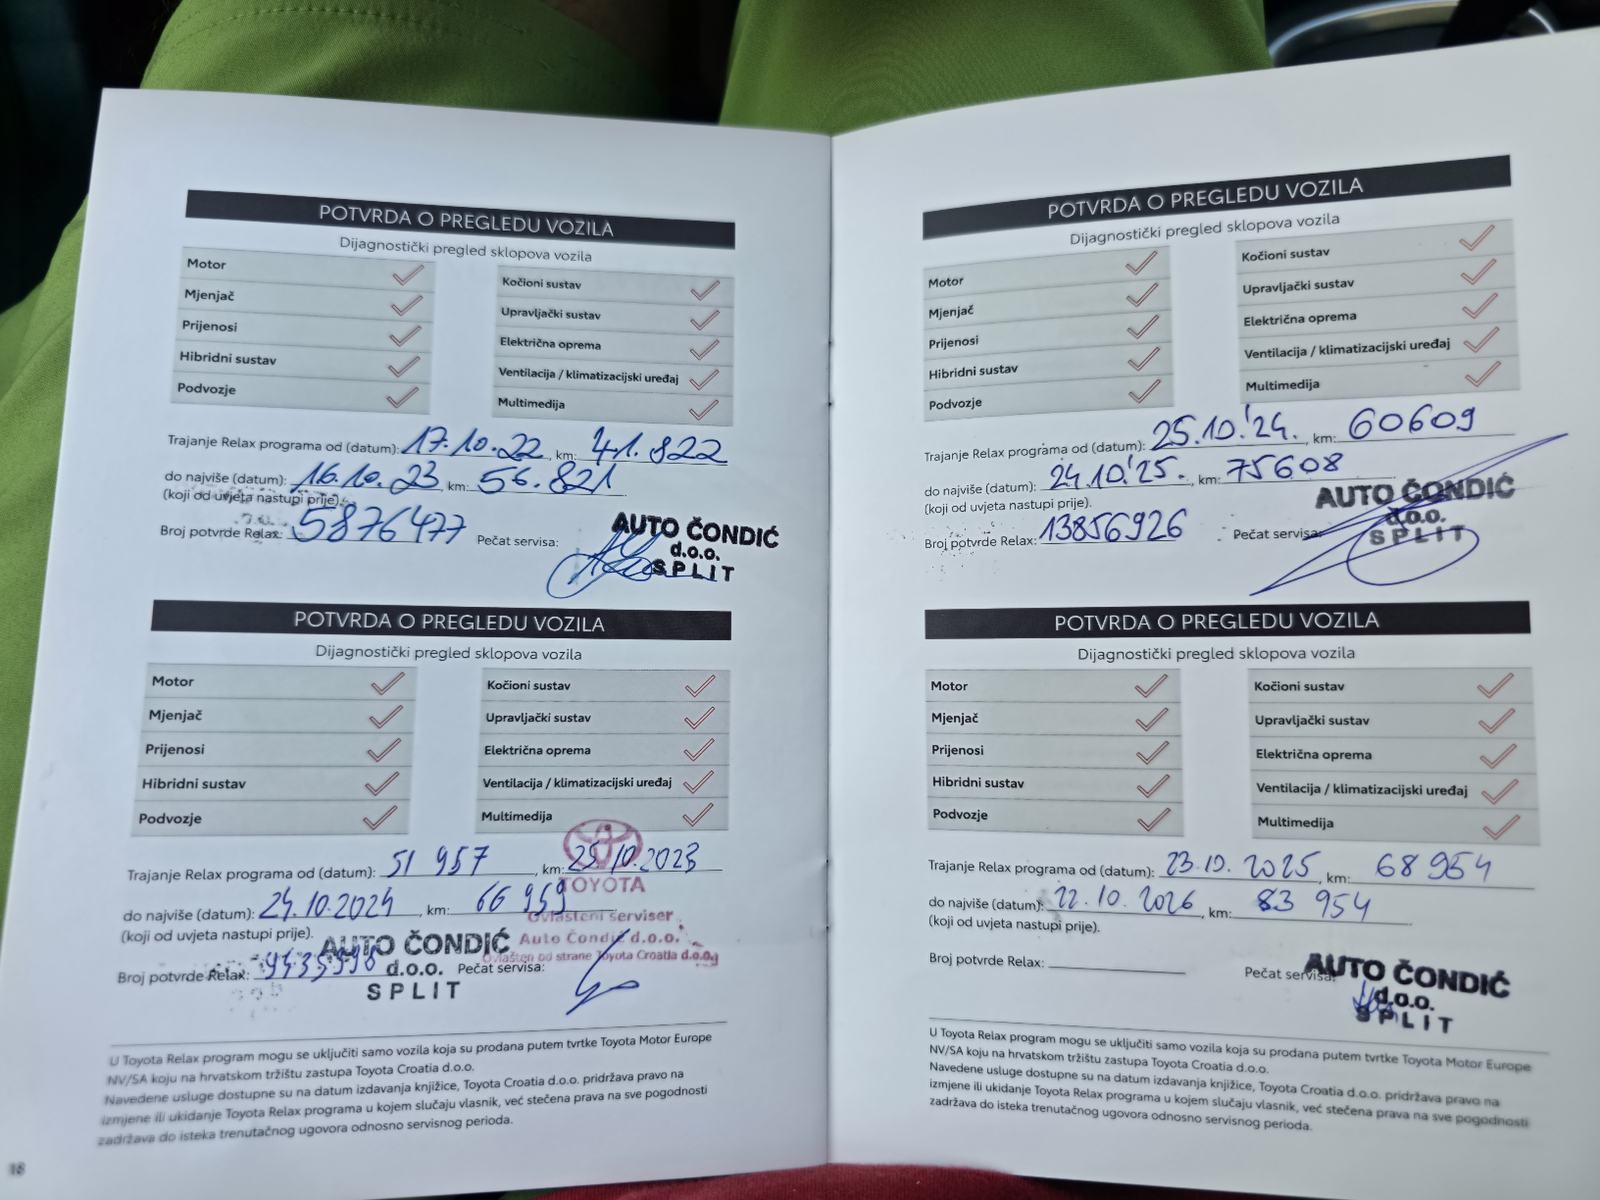 POTVRDA O PREGLEDU VOZILA
Dijagnostički pregled sklopova vozila
Motor
Mjenjač
Prijenosi
Hibridni sustav
Podvozje
Kočioni sustav
Upravljački sustav
Električna oprema
Ventilacija / klimatizacijski uređaj
Multimedija
Trajanje Relax programa od (datum): 17.10.22, km: 41.822
do najviše (datum): 16.10.23, km: 56.821
(koji od uvjeta nastupi prije).
Broj potvrde Relax: 5876477 Pečat servisa:
AUTO ČONDIĆ
d.o.o.
SPLIT
POTVRDA O PREGLEDU VOZILA
Dijagnostički pregled sklopova vozila
Motor
Mjenjač
Prijenosi
Hibridni sustav
Podvozje
Kočioni sustav
Upravljački sustav
Električna oprema
Ventilacija / klimatizacijski uređaj
Multimedija
Trajanje Relax programa od (datum): 51 957, km: 25.10.2023
TOYOTA
do najviše (datum): 24.10.2024, km: 66 959
(koji od uvjeta nastupi prije).
Ovlašteni serviser
Auto Čondić d.o.o.
Ovlašten od strane Toyota Croatia d.o.o.
Broj potvrde Relax: Pečat servisa:
AUTO ČONDIĆ
d.o.o.
SPLIT
U Toyota Relax program mogu se uključiti samo vozila koja su prodana putem tvrtke Toyota Motor Europe
NV/SA koju na hrvatskom tržištu zastupa Toyota Croatia d.o.o.
Navedene usluge dostupne su na datum izdavanja knjižice, Toyota Croatia d.o.o. pridržava pravo na
izmjene ili ukidanje Toyota Relax programa u kojem slučaju vlasnik, već stečena prava na sve pogodnosti
zadržava do isteka trenutačnog ugovora odnosno servisnog perioda.
18
POTVRDA O PREGLEDU VOZILA
Dijagnostički pregled sklopova vozila
Motor
Mjenjač
Prijenosi
Hibridni sustav
Podvozje
Kočioni sustav
Upravljački sustav
Električna oprema
Ventilacija / klimatizacijski uređaj
Multimedija
Trajanje Relax programa od (datum): 25.10.'24., km: 60609
do najviše (datum): 24.10.'25., km: 75608
(koji od uvjeta nastupi prije).
Broj potvrde Relax: 13856926 Pečat servisa:
AUTO ČONDIĆ
d.o.o.
SPLIT
POTVRDA O PREGLEDU VOZILA
Dijagnostički pregled sklopova vozila
Motor
Mjenjač
Prijenosi
Hibridni sustav
Podvozje
Kočioni sustav
Upravljački sustav
Električna oprema
Ventilacija / klimatizacijski uređaj
Multimedija
Trajanje Relax programa od (datum): 23.10.2025, km: 68 954
do najviše (datum): 22.10.2026, km: 83 954
(koji od uvjeta nastupi prije).
Broj potvrde Relax: Pečat servisa:
AUTO ČONDIĆ
d.o.o.
SPLIT
U Toyota Relax program mogu se uključiti samo vozila koja su prodana putem tvrtke Toyota Motor Europe
NV/SA koju na hrvatskom tržištu zastupa Toyota Croatia d.o.o.
Navedene usluge dostupne su na datum izdavanja knjižice, Toyota Croatia d.o.o. pridržava pravo na
izmjene ili ukidanje Toyota Relax programa u kojem slučaju vlasnik, već stečena prava na sve pogodnosti
zadržava do isteka trenutačnog ugovora odnosno servisnog perioda.